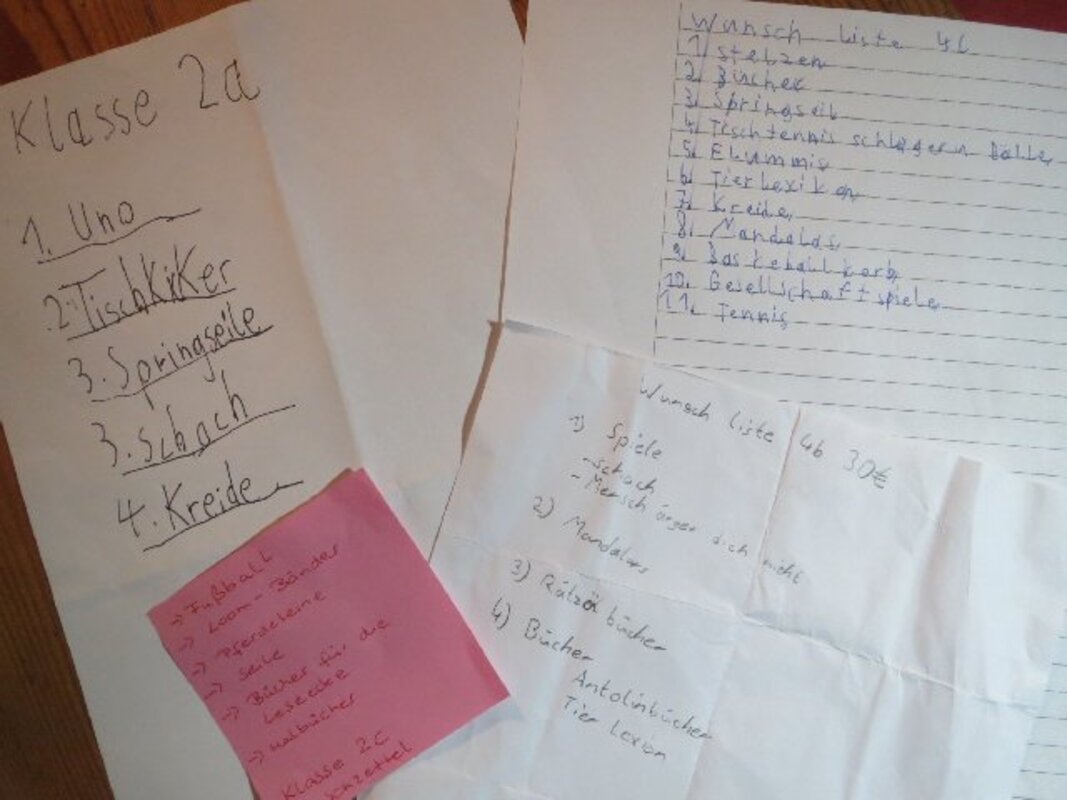 Klasse 2a
1. Uno
2. TischKiKer
3. Springseile
3. Schach
4. Kreide
Wunsch Liste 4c
1. Stelzen
2. Bücher
3. Springseil
4. Tischtennis schläger n Bälle
5. Flummis
6. Tier Lexikon
7. Kreide
8. Mandalas
9. Basketballkorb
10. Gesellschaftspiele
11. Tennis
Wunsch liste 4b 30€
1) Spiele
- Schach
- Mensch ärger dich nicht
2) Mandalas
3) Rätzäl bücher
4) Bücher
Antolinbücher
Tier Lexion
-> Fußball
-> Loom-Bänder
-> Pferdeleine
-> Seile
-> Bücher für die
Leseecke
-> Malbücher
Klasse 2c